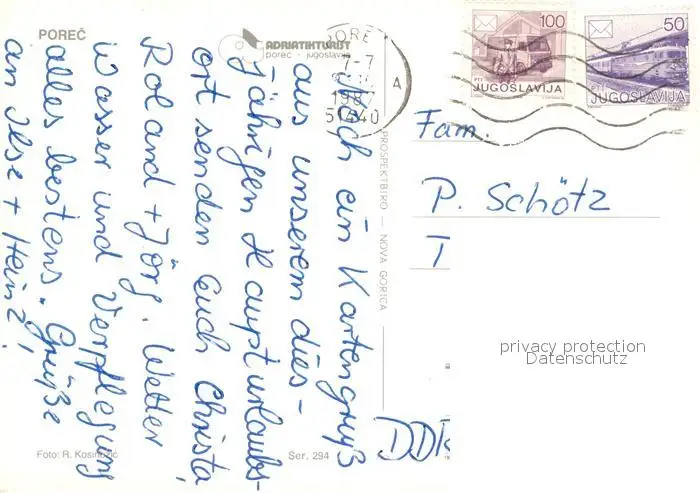 POREČ
ADRIATIKTURIST
poreč - jugoslavija
Noch ein Kartengruß
aus unserem dies-
jährigen Haupturlaubs-
ort senden Euch Christa,
Roland + Jörg. Wetter
Wasser und Verpflegung
alles bestens. Grüße
an Ilse + Heinz!
Foto: R. Kosinožić
Ser. 294
PROSPEKTBIRO — NOVA GORICA
7-7
1987
51440
A
100
PTT
JUGOSLAVIJA
50
PTT
JUGOSLAVIJA
Fam.
P. Schötz
T
DDR
privacy protection
Datenschutz